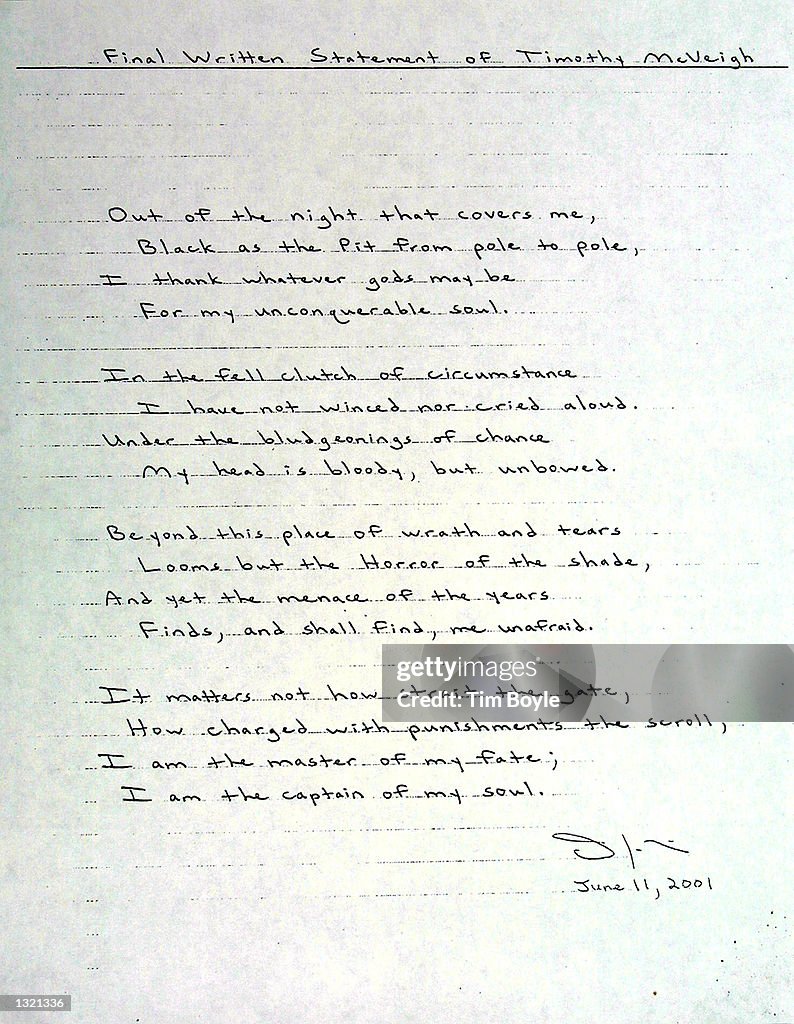 Final Written Statement of Timothy McVeigh
Out of the night that covers me,
Black as the Pit from pole to pole,
I thank whatever gods may be
For my unconquerable soul.
In the fell clutch of circumstance
I have not winced nor cried aloud.
Under the bludgeonings of chance
My head is bloody, but unbowed.
Beyond this place of wrath and tears
Looms but the Horror of the shade,
And yet the menace of the years
Finds, and shall find, me unafraid.
gettyimages
Tim Boyle
It matters not how strait the gate,
How charged with punishments the scroll,
I am the master of my fate;
I am the captain of my soul.
June 11, 2001
1321336